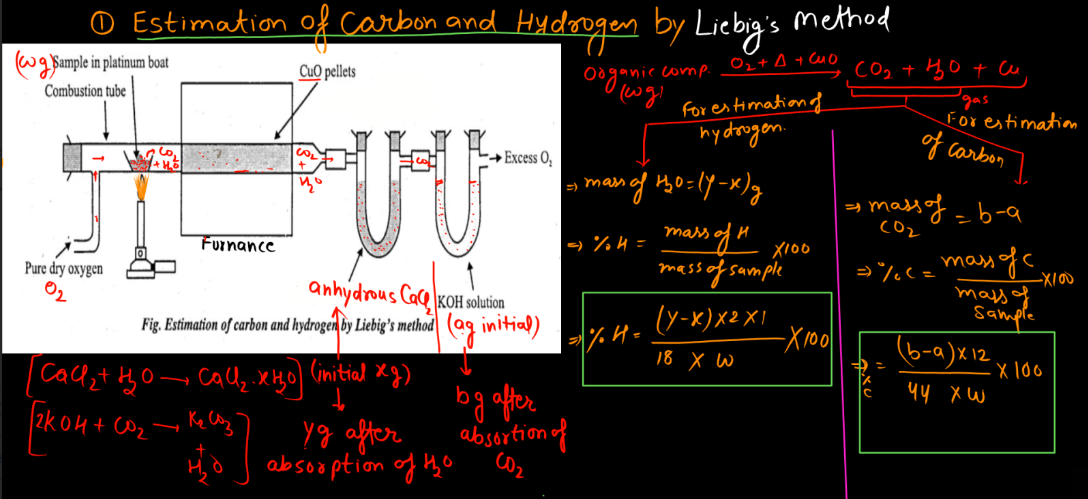 ① Estimation of Carbon and Hydrogen by Liebig's method
(wg)
Sample in platinum boat
Combustion tube
CuO pellets
CO2
+ H2O
CO2
+
H2O
CO2
→ Excess O2
Furnance
Pure dry oxygen
O2
anhydrous CaCl2
KOH solution
Fig. Estimation of carbon and hydrogen by Liebig's method
(ag initial)
[CaCl2 + H2O → CaCl2.xH2O] (initial xg)
[2KOH + CO2 → K2CO3
+
H2O]
yg after
absorption of H2O
bg after
absortion of
CO2
Organic comp. O2 + Δ + CuO → CO2 + H2O + Cu
(wg)
gas
For estimation of
hydrogen.
⇒ mass of H2O = (y-x)g
⇒ % H = mass of H / mass of sample X100
⇒ % H = (y-x) X 2 X 1 / 18 X W X 100
For estimation
of Carbon
⇒ mass of CO2 = b-a
⇒ % C = mass of C / mass of Sample X100
⇒ % C = (b-a) X 12 / 44 X W X 100